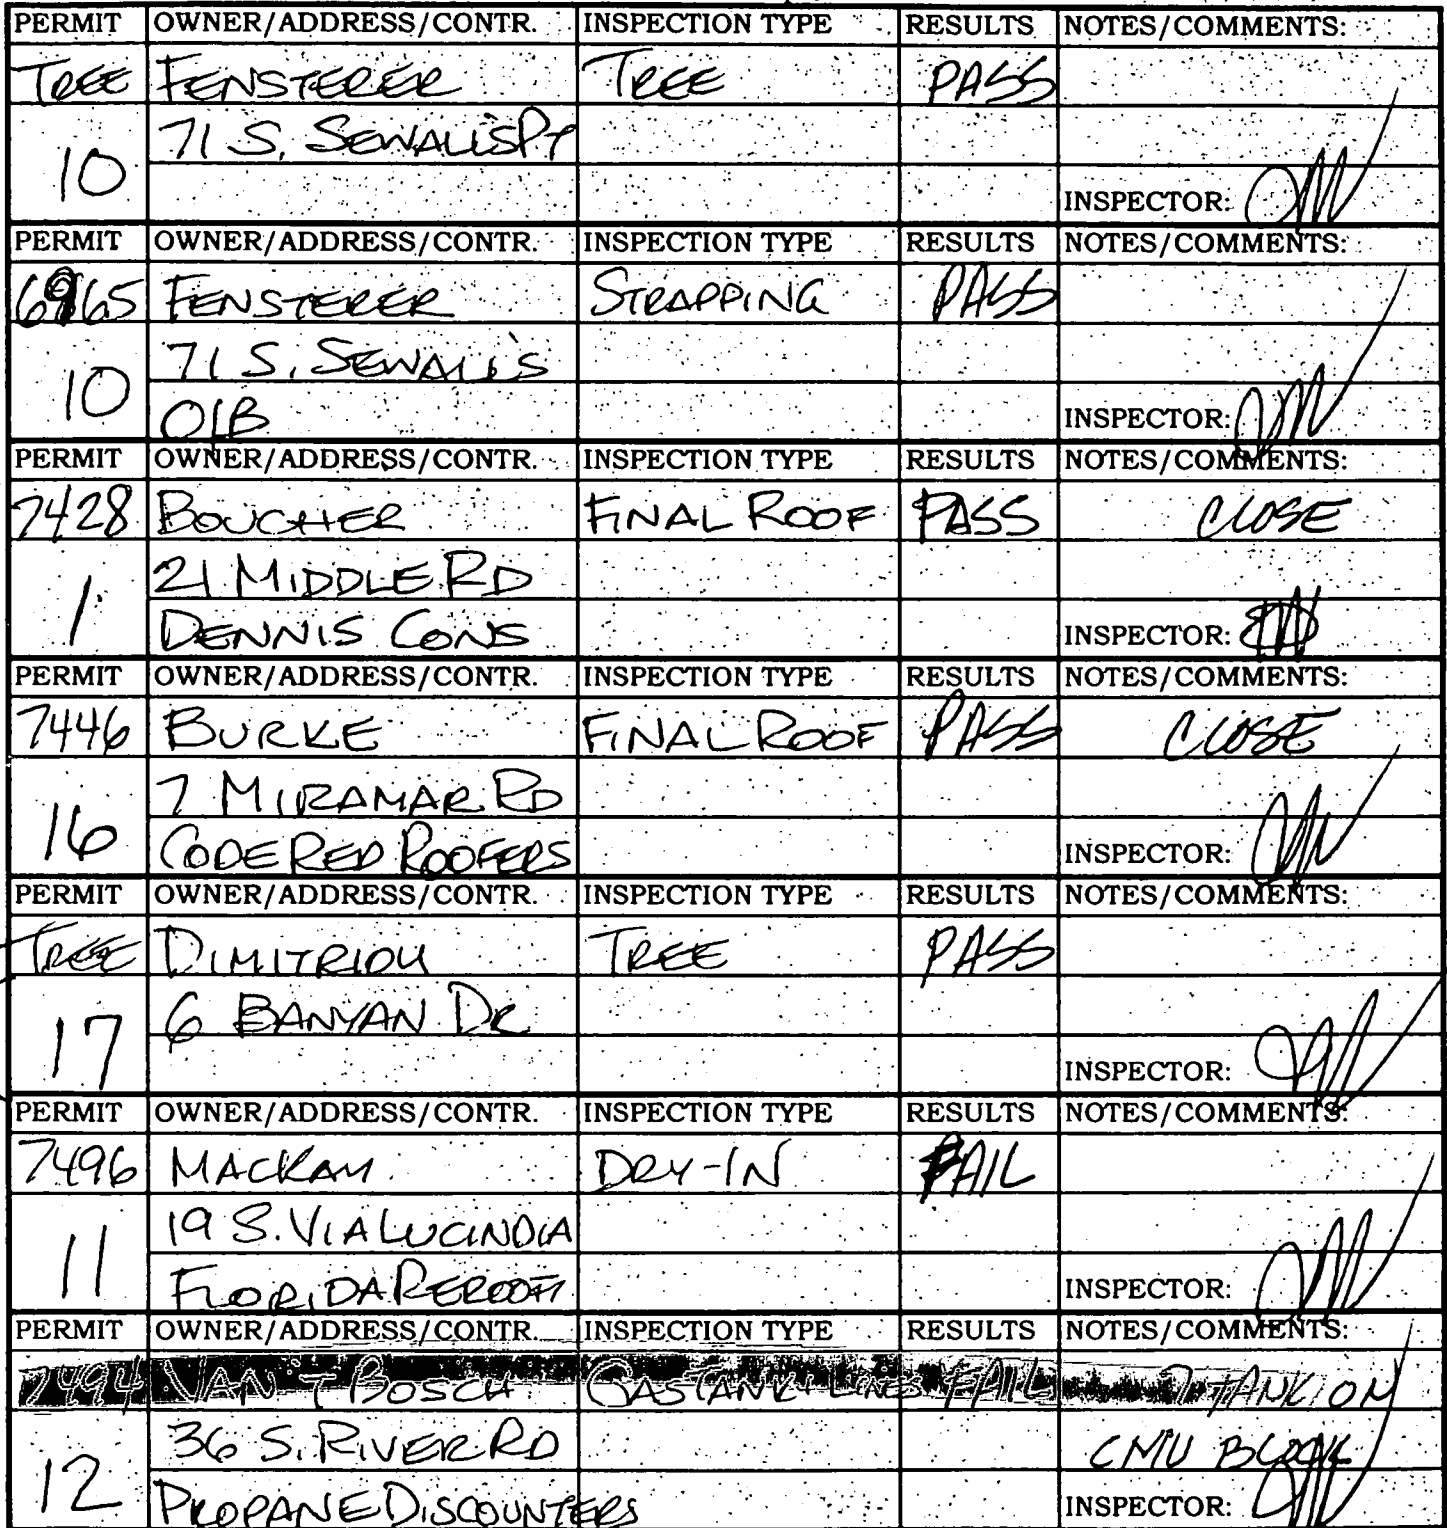 PERMIT OWNER/ADDRESS/CONTR. INSPECTION TYPE RESULTS NOTES/COMMENTS:
TREE FENSTERER TREE PASS
71 S. SEWALL'S PT
10
INSPECTOR:
PERMIT OWNER/ADDRESS/CONTR. INSPECTION TYPE RESULTS NOTES/COMMENTS:
6965 FENSTERER STRAPPING PASS
71 S. SEWALL'S
10
O/B INSPECTOR:
PERMIT OWNER/ADDRESS/CONTR. INSPECTION TYPE RESULTS NOTES/COMMENTS:
7428 BOUCHER FINAL ROOF PASS CLOSE
21 MIDDLE RD
1
DENNIS CONS INSPECTOR:
PERMIT OWNER/ADDRESS/CONTR. INSPECTION TYPE RESULTS NOTES/COMMENTS:
7446 BURKE FINAL ROOF PASS CLOSE
7 MIRAMAR RD
16
CODE RED ROOFERS INSPECTOR:
PERMIT OWNER/ADDRESS/CONTR. INSPECTION TYPE RESULTS NOTES/COMMENTS:
TREE DIMITRIOU TREE PASS
6 BANYAN DR
17
INSPECTOR:
PERMIT OWNER/ADDRESS/CONTR. INSPECTION TYPE RESULTS NOTES/COMMENTS:
7496 MACKAY DRY-IN FAIL
19 S. VIA LUCINDIA
11
FLORIDA REROOF INSPECTOR:
PERMIT OWNER/ADDRESS/CONTR. INSPECTION TYPE RESULTS NOTES/COMMENTS:
7494 VAN T BOSCH GAS TANK + LINES FAIL TANK ON
36 S. RIVER RD CMU BLOCK
12
PROPANE DISCOUNTERS INSPECTOR: